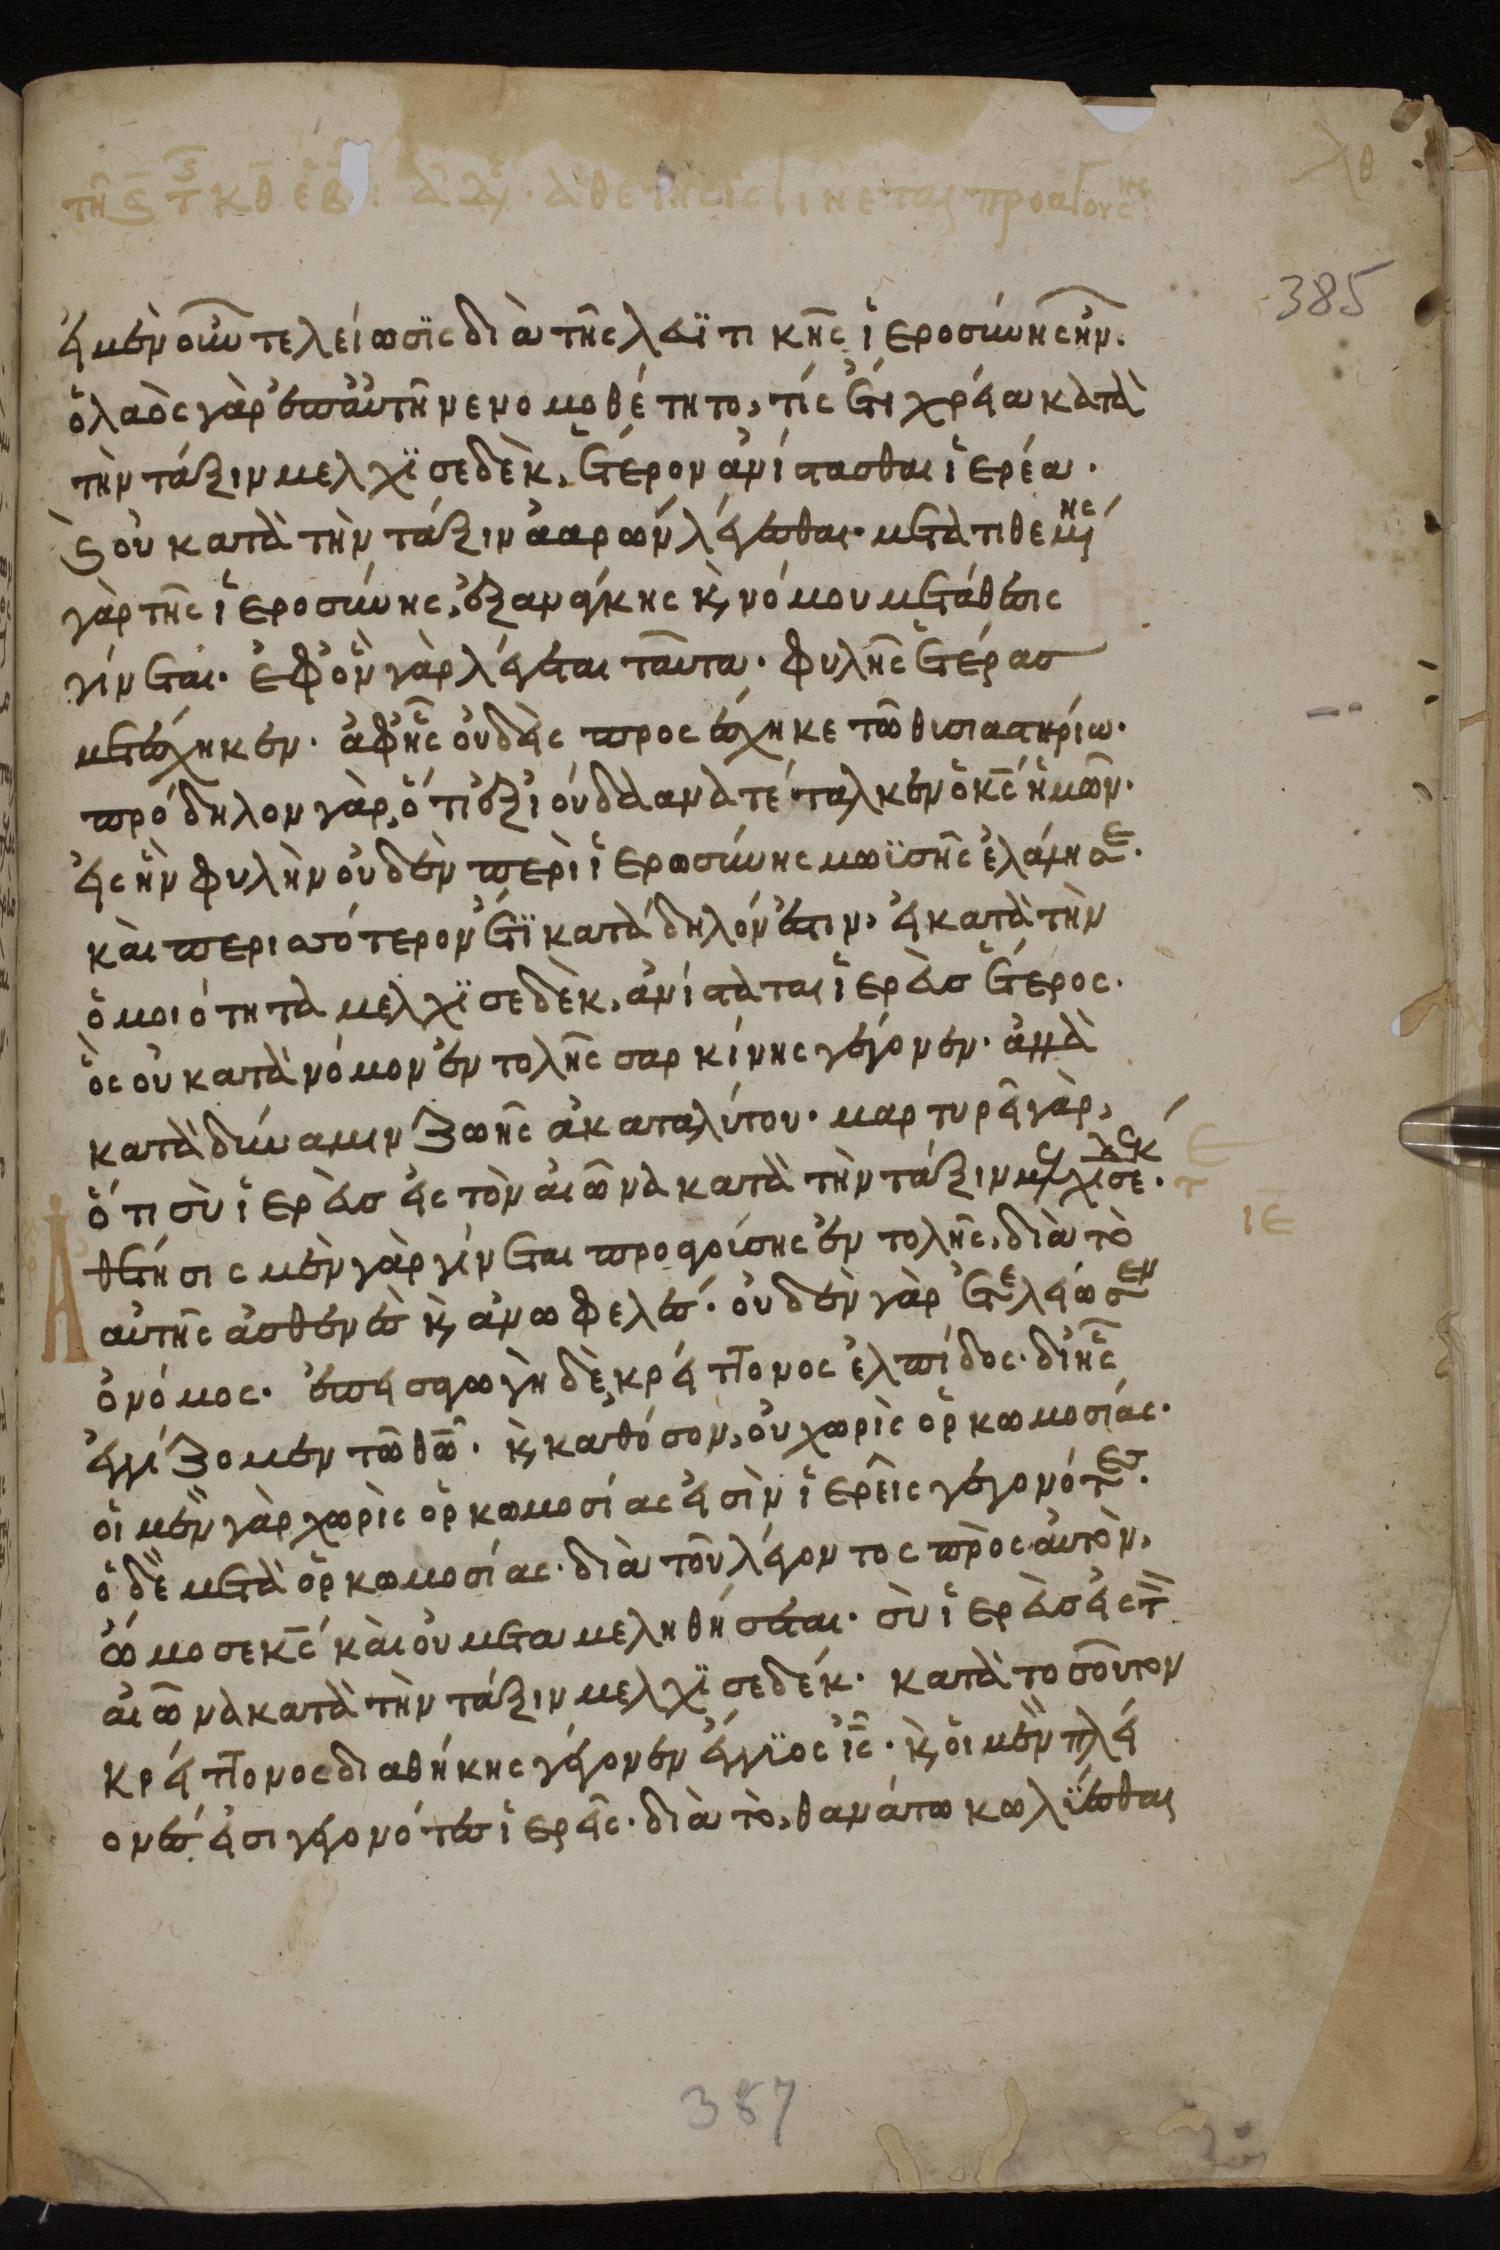 τῆ ϛ̄ τ̄ κθ̄ ἑβ: ἀδ̓. ἀθέτησις γίνεται προαγούσης:
λθ
385
εἰ μὲν οὖν τελείωσϊς διὰ τῆς λευϊτικῆς ἱεροσύνης ἦν.
ὁ λαὸς γὰρ ἐπ' αὐτῆ νενομοθέτητο, τίς ἔτι χρεία κατὰ
τὴν τάξιν μελχϊσεδὲκ, ἕτερον ἀνίστασθαι ἱερέα.
ϗ οὐ κατὰ τὴν τάξιν ἀαρων λέγεσθαι. μετατιθεμένης
γὰρ τῆς ἱεροσύνης, ἐξ ανάγκης ϗ νόμου μετάθεσις
γίνεται. ἐφ' ὃν γὰρ λέγεται ταῦτα. φυλῆς ἑτέρας
μετέσχηκεν. ἀφ' ἧς οὐδεὶς προσέσχηκε τῶ θυσιαστηρίω.
πρόδηλον γὰρ, ὅτι ἐξ ἰούδα ανατέταλκεν ὁ κς̄ ἡμῶν.
εἰς ἣν φυλὴν οὐδὲν περὶ ἱερωσύνης μωϊσῆς ἐλάλησε.
καὶ περισσότερον ἔτϊ κατάδηλόν ἐστιν, εἰ κατὰ τὴν
ὁμοιότητα μελχϊσεδὲκ, ἀνίσταται ἱερεὺς ἕτερος.
ὃς οὐ κατὰ νόμον ἐντολῆς σαρκίνης γέγονεν. ἀλλὰ
κατὰ δύναμιν ζωῆς ἀκαταλύτου. μαρτυρεῖ γὰρ,
ὅτι σὺ ἱερεὺς εἰς τὸν αἰῶνα κατὰ τὴν τάξιν μελχισεδέκ.
ιε̄
Ἀθέτησις μὲν γὰρ γίνεται προαγούσης ἐντολῆς, διὰ τὸ
αὐτῆς ἀσθενὲς ϗ ἀνωφελές. οὐδὲν γὰρ ἐτελείωσεν
ὁ νόμος. ἐπεισαγωγὴ δὲ κρείττονος ἐλπίδος. δι' ἧς
ἐγγίζομεν τῶ θῶ. ϗ καθόσον, οὐ χωρὶς ὁρκωμοσίας.
οἱ μὲν γὰρ χωρὶς ὁρκωμοσίας εἰσὶν ἱερεῖς γεγονότες.
ὁ δὲ μετὰ ὁρκωμοσίας. διὰ τοῦ λέγοντος πρὸς αὐτὸν,
ὤμοσε κς̄ καὶ οὐ μεταμεληθήσεται. σὺ ἱερεὺς εἰς τ
αἰῶνα κατὰ τὴν τάξιν μελχϊσεδέκ. κατὰ τοσοῦτον
κρείττονος διαθήκης γέγονεν ἔγγϋος ις̄. ϗ οἱ μὲν πλεί
ονές εἰσι γεγονότες ἱερεῖς. διὰ τὸ, θανάτω κωλύεσθαι
387